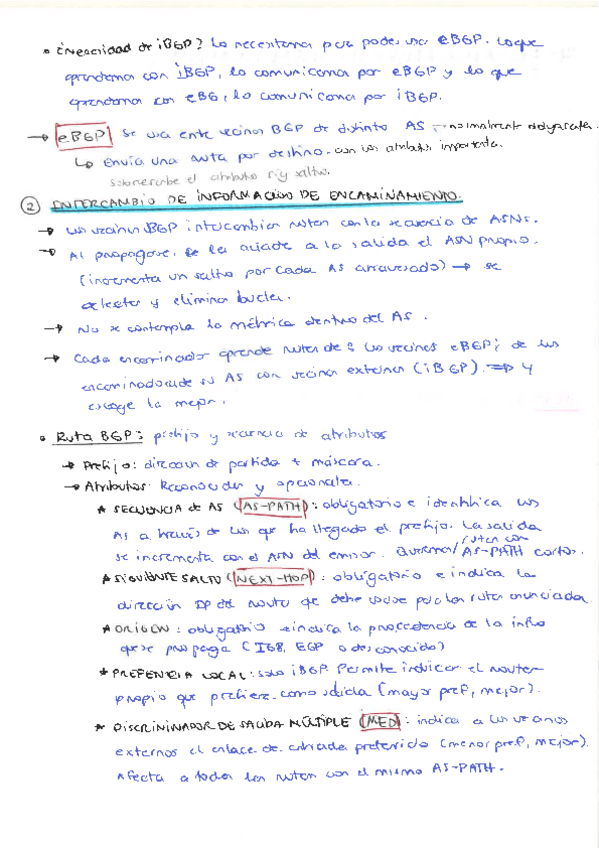 • ¿Necesidad de iBGP? Lo necesitamos para poder usar eBGP. Lo que
aprendemos con iBGP, lo comunicamos por eBGP y lo que
aprendemos con eBG, lo comunicamos por iBGP.
→ eBGP Se usa entre vecinos BGP de distinto AS, normalmente
↳ Envía una ruta por destino con los atributos importantes.
sobreescribe el atributo sig salto.
② INTERCAMBIO DE INFORMACIÓN DE ENCAMINAMIENTO.
→ Los vecinos BGP intercambian rutas con la secuencia de ASNs.
→ Al propagarse, se le añade a la salida el ASN propio.
(incrementa un salto por cada AS atravesado) → se
detectan y eliminan bucles.
→ No se contempla la métrica dentro del AS.
→ Cada encaminador aprende rutas de: los vecinos eBGP; de los
encaminadores de su AS con vecinos externos (iBGP). ⇒ Y
escoge la mejor.
• Ruta BGP: prefijo y secuencia de atributos
→ Prefijo: dirección de partida + máscara.
→ Atributos: Reconocidos y opcionales.
* SECUENCIA de AS (AS-PATH): obligatorio e identifica los
AS a través de los que ha llegado el prefijo. La salida
se incrementa con el ASN del emisor. Queremos rutas con AS-PATH cortos.
* SIGUIENTE SALTO (NEXT-HOP): obligatorio e indica la
dirección IP del router que debe usarse para las rutas anunciadas
* ORIGEN: obligatorio e indica la procedencia de la info
que se propaga (IGB, EGP o desconocido)
* PREFERENCIA LOCAL: solo iBGP. Permite indicar el router
propio que prefiere como salida (mayor pref, mejor).
* DISCRIMINADOR DE SALIDA MÚLTIPLE (MED): indica a los vecinos
externos el enlace de entrada preferido (menor pref, mejor).
Afecta a todas las rutas con el mismo AS-PATH.